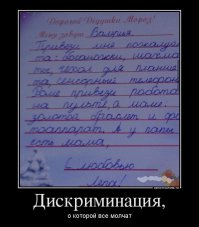 Дорогой Дедушка Мороз!
Меня зовут Валерия.
Привези мне пожалуйс
та: босоножки, шахма
ты, чехол для планше
та, сенсорный телефон.
Роме привези робота
на пульте, а маме
золотой браслет и фо
тоаппарат. А у папы
есть мама,
С любовью
Лера!
Дискриминация,
о которой все молчат